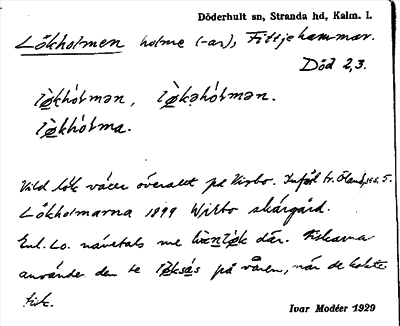 Döderhult sn, Stranda hd, Kalm. l.
Lökholmen holme (-ar), Fittjehammar.
Död 2,3.
lø̀khólmən, lø̀kəhólmən.
lø̀khólma.
Vild lök växer överallt på Virbo. Jnf. Öland, sid. 5.
Lökholmarna 1899 Wirbo skärgård.
Enl. Lo. växer me lök där. Fiskarna
använde den te løksås på våren, när de kokte
fisk.
Ivar Modéer 1929